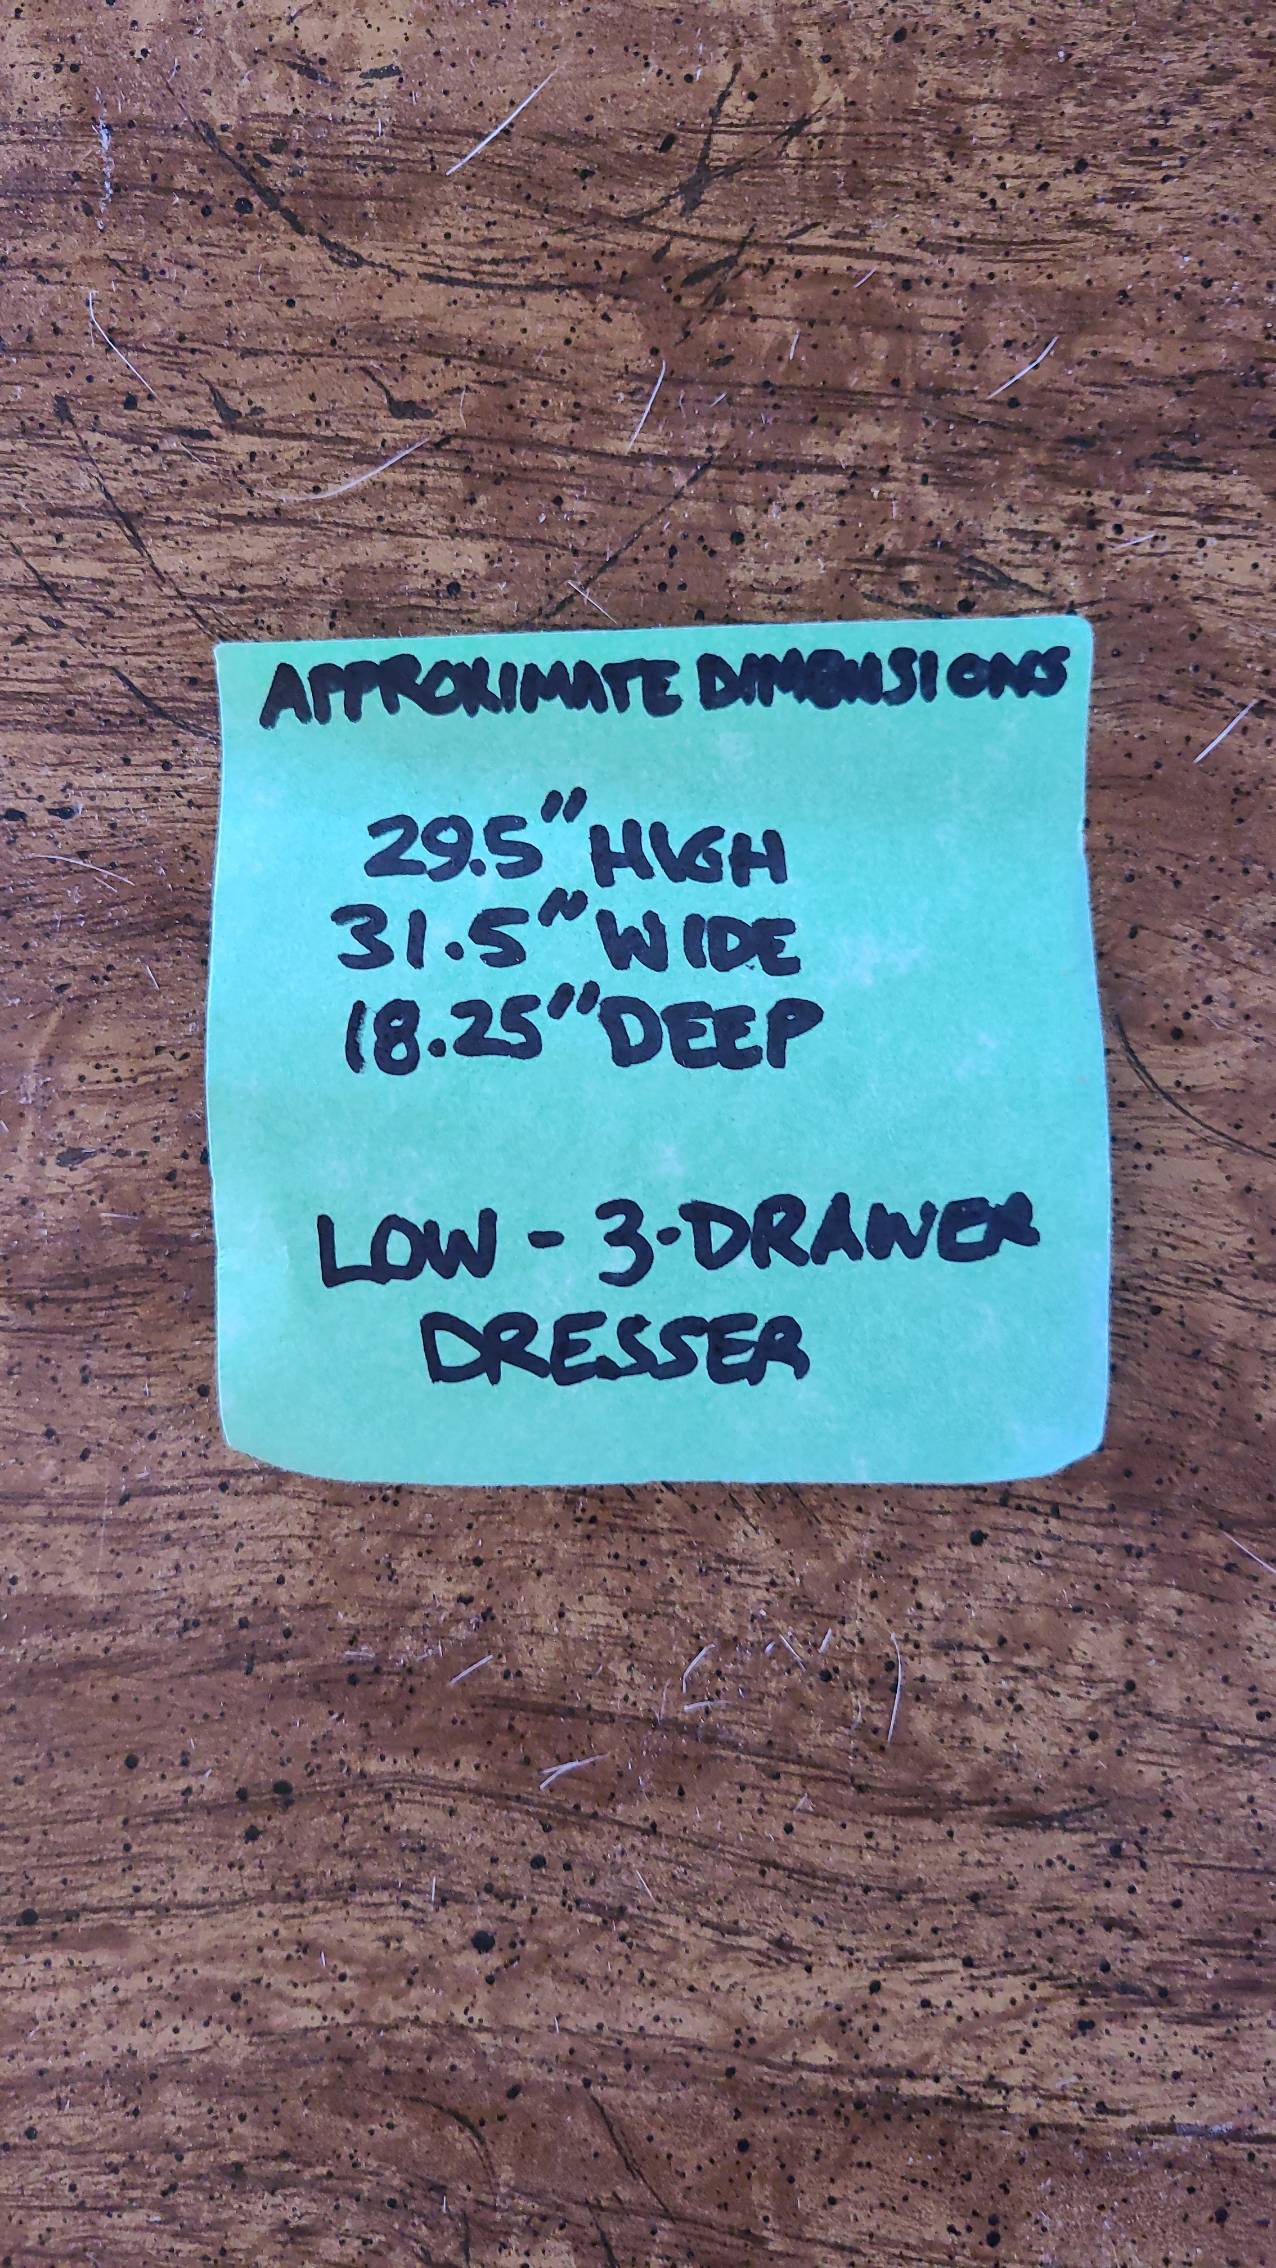 APPROXIMATE DIMENSIONS
29.5" HIGH
31.5" WIDE
18.25" DEEP
LOW - 3-DRAWER
DRESSER